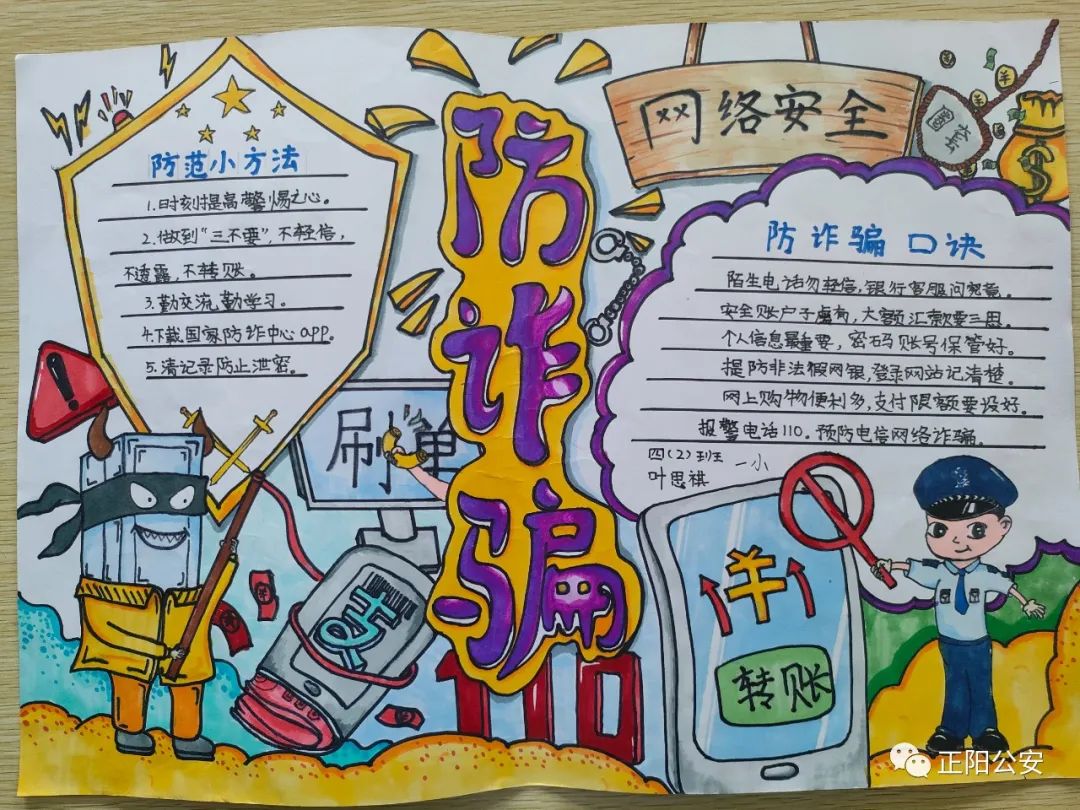 防诈骗
网络安全
防范小方法
1.时刻提高警惕之心。
2.做到“三不要”,不轻信,
不透露,不转账。
3.勤交流,勤学习。
4.下载国家防诈中心app。
5.清记录防止泄密。
防诈骗口诀
陌生电话勿轻信,银行客服问究竟。
安全账户子虚有,大额汇款要三思。
个人信息最重要,密码账号保管好。
提防非法假网银,登录网站记清楚。
网上购物便利多,支付限额要设好。
报警电话110.预防电信网络诈骗。
四(2)班 一小
叶思祺
刷单
支
110
转账
$
!
正阳公安